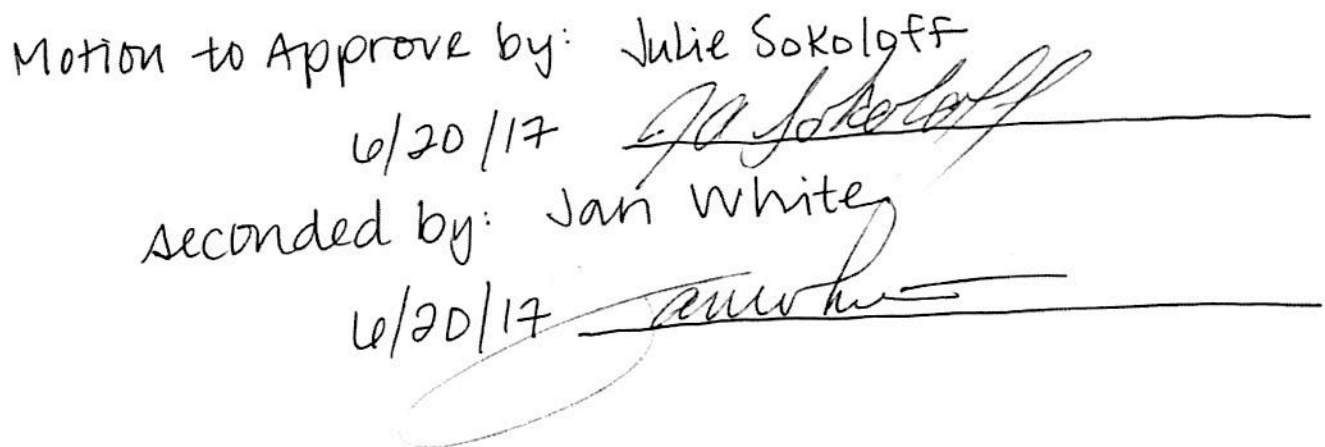 Motion to Approve by: Julie Sokoloff
6/20/17 JA Sokoloff
seconded by: Jan White
6/20/17 Jan White